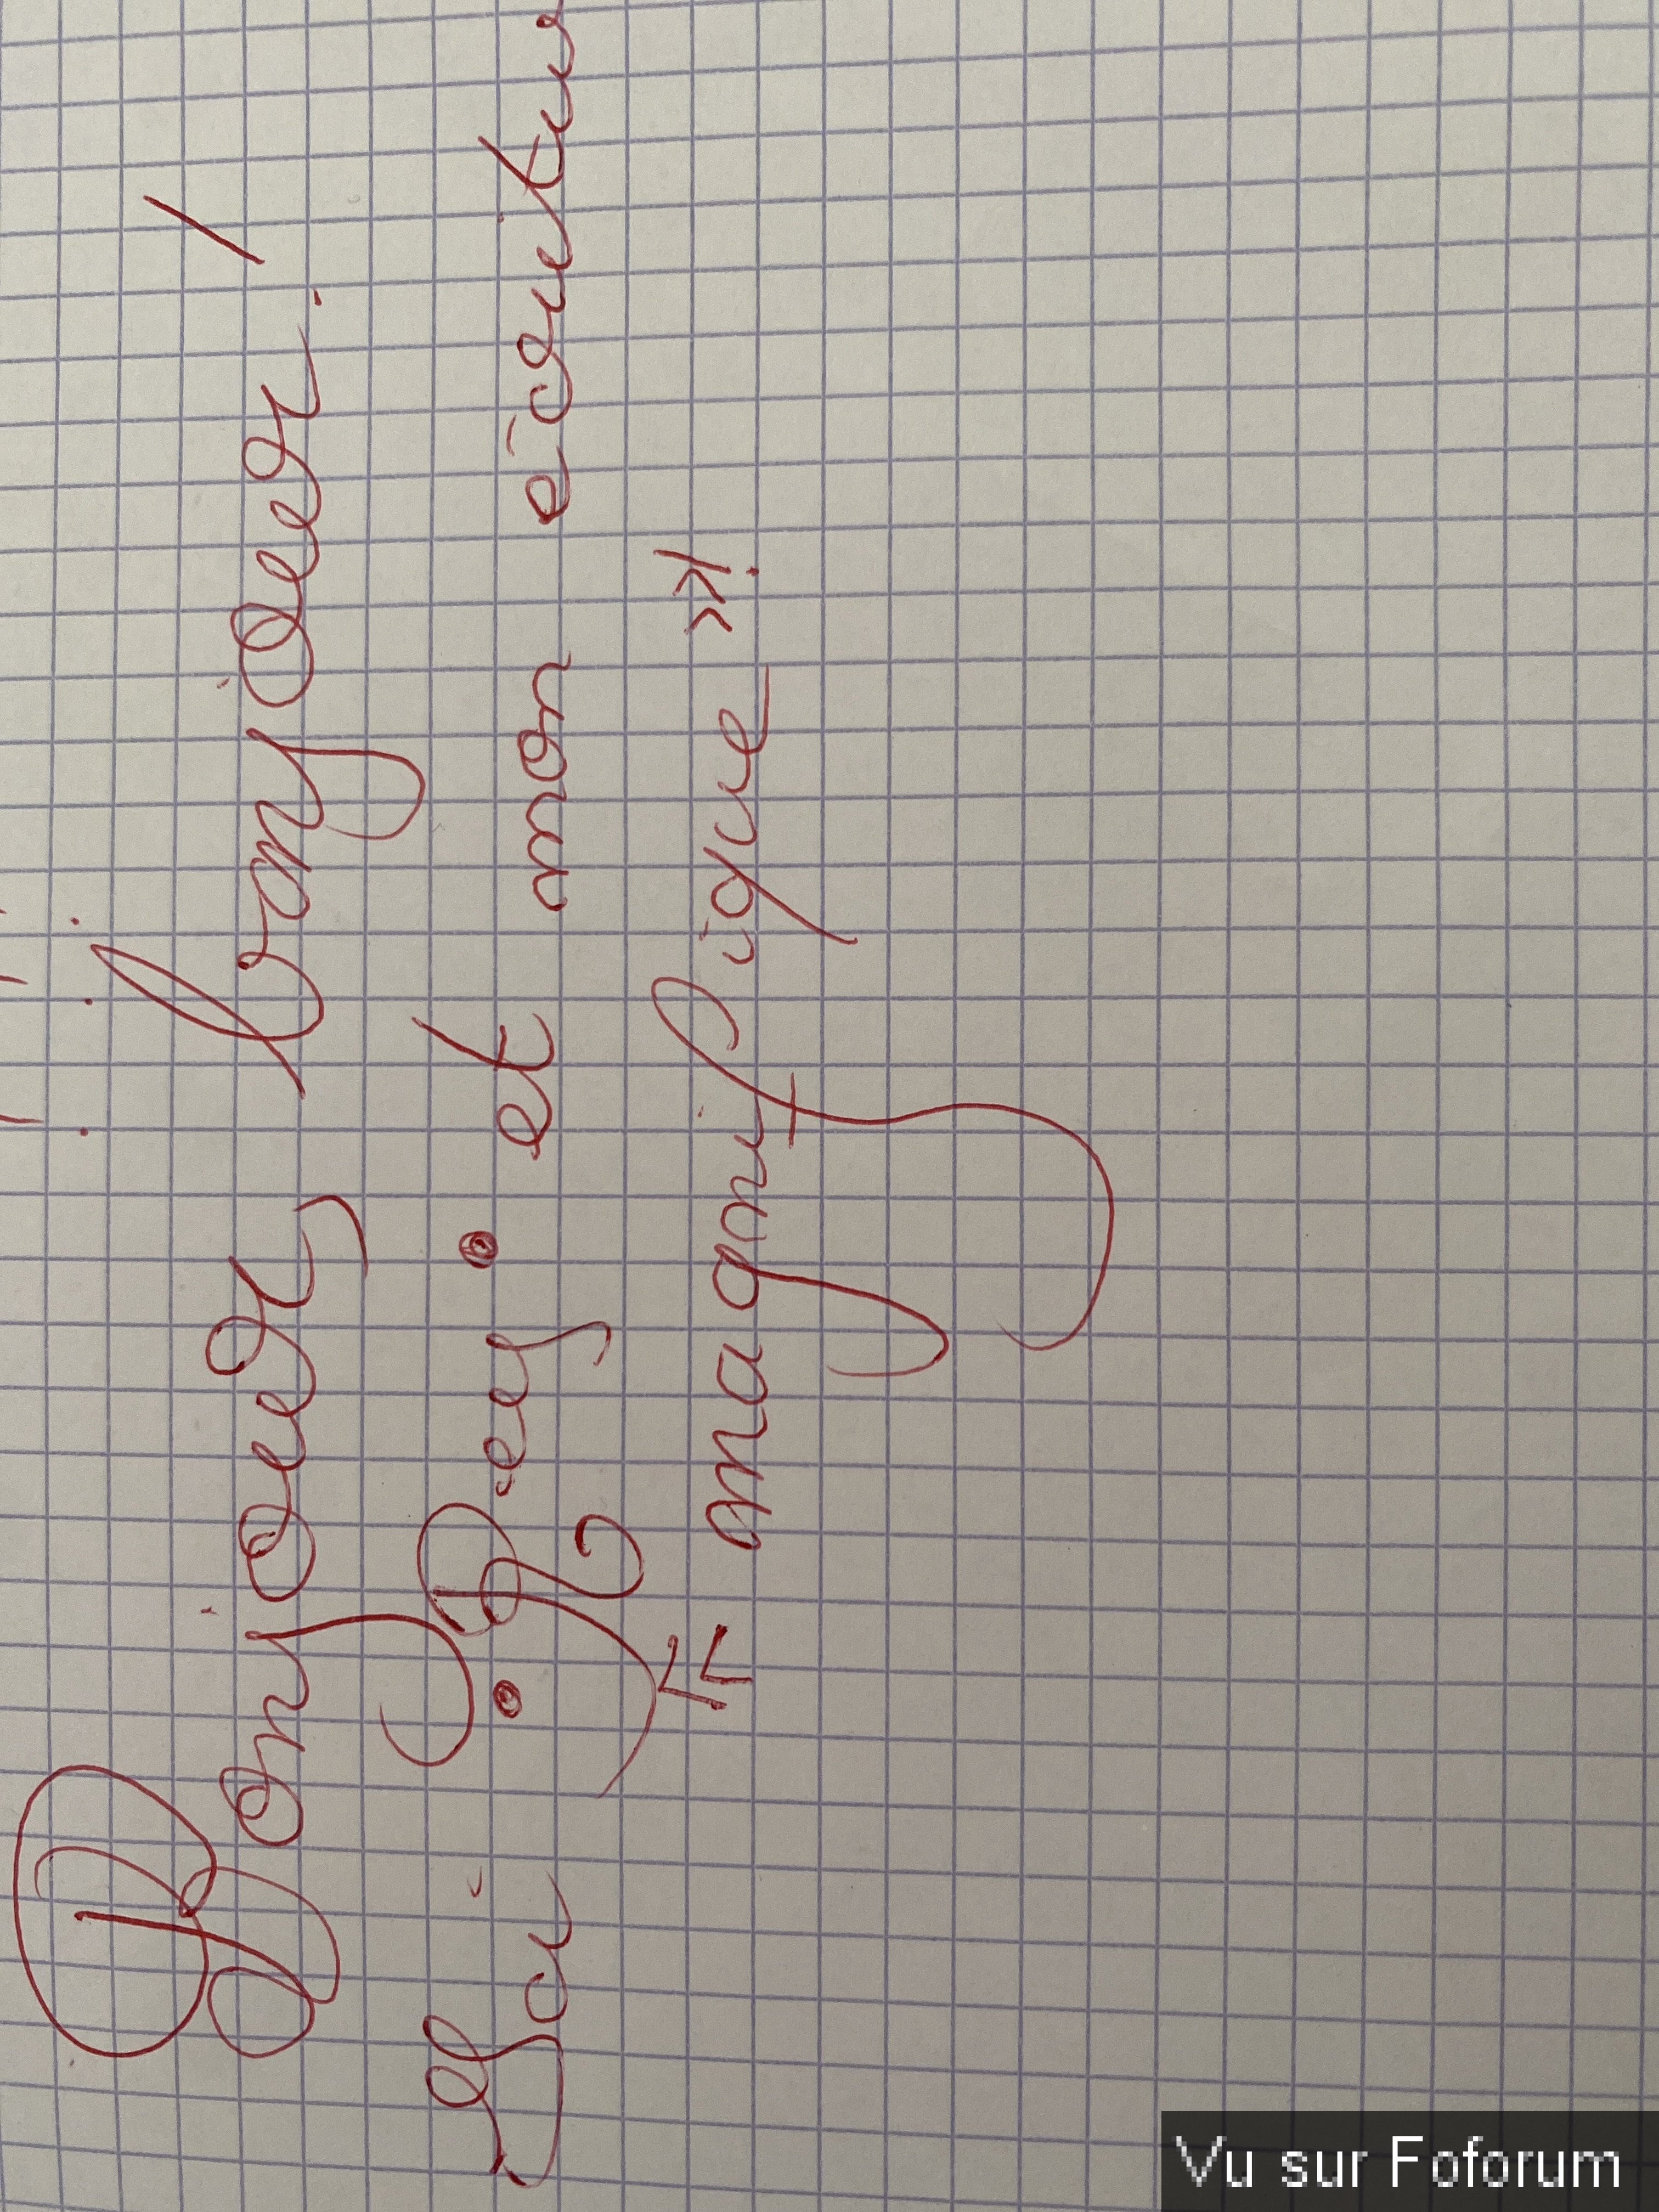 Bonjour, bonjour !
Sai • Rey • et mon écritur
« magnifique »!
Vu sur Foforum